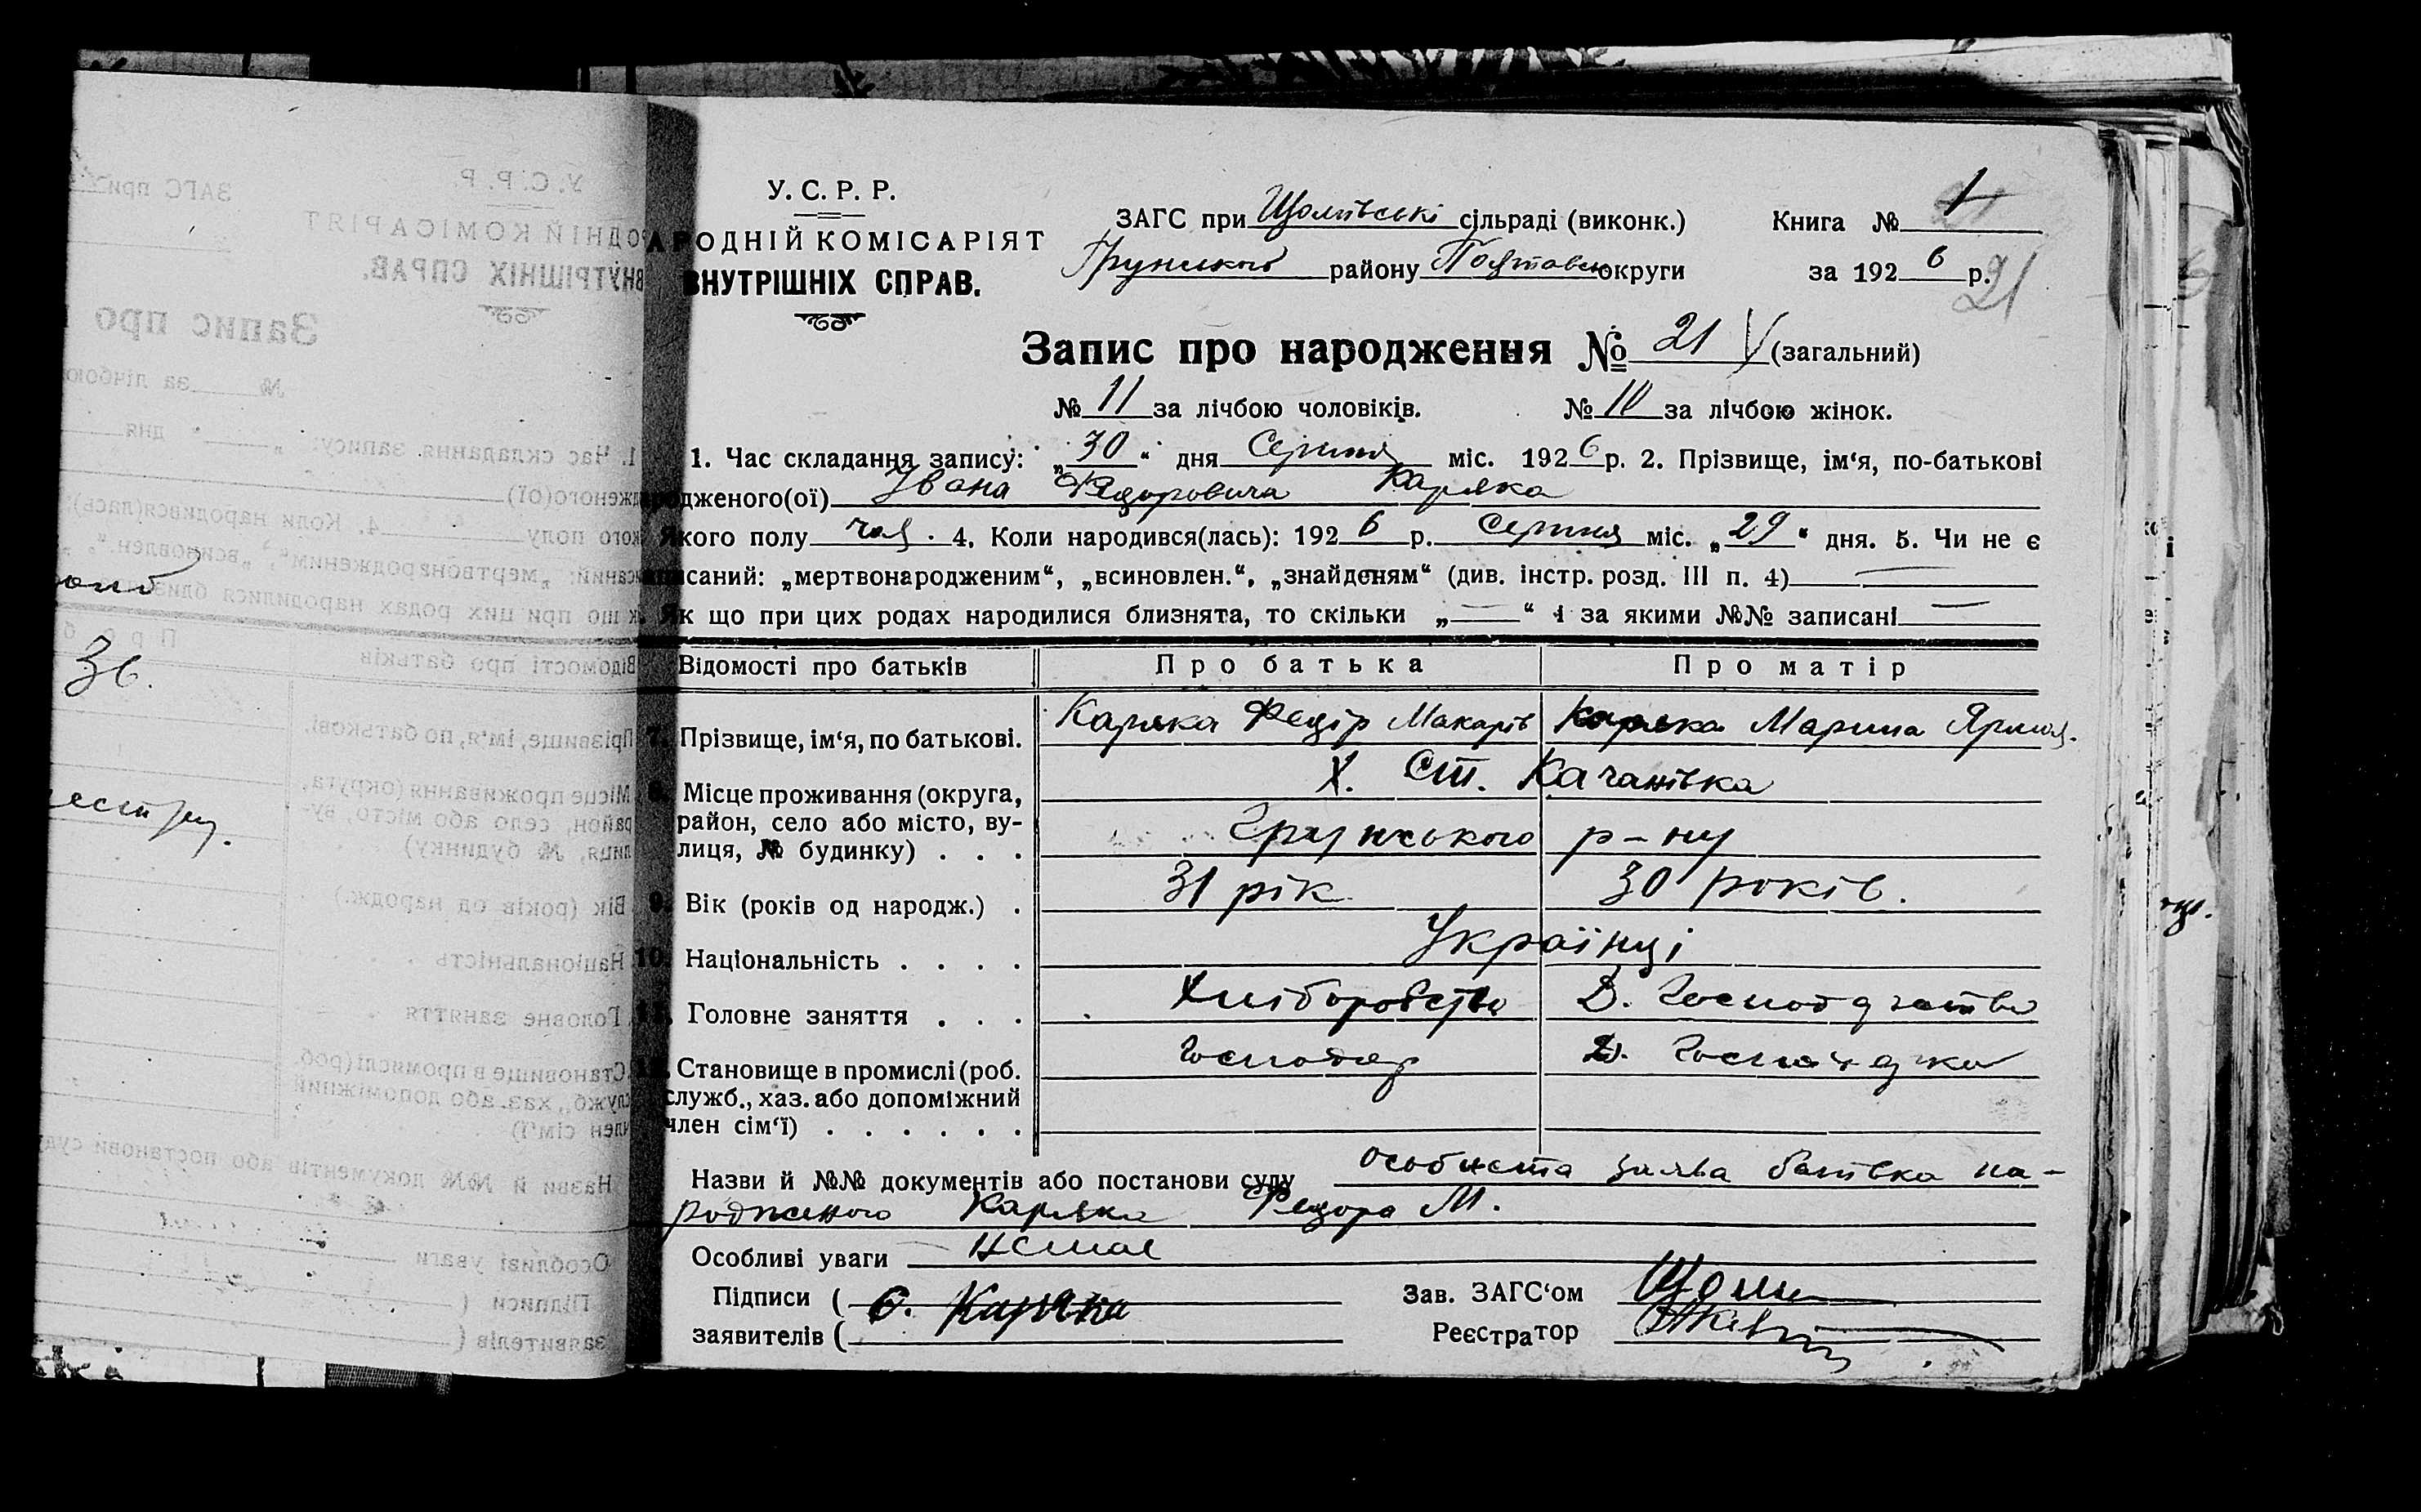 У. С. Р. Р.
АРОДНІЙ КОМІСАРІЯТ
ВНУТРІШНІХ СПРАВ.
ЗАГС при сільраді (виконк.) Книга № 1
Грунського району округи за 1926 р. 21
Запис про народження № 21 (загальний)
№ 11 за лічбою чоловіків. № 10 за лічбою жінок.
1. Час складання запису: „30“ дня Серпня міс. 1926 р. 2. Прізвище, ім‘я, по-батькові
родженого(ої) Івана Федоровича Каряка
Якого полу чол. 4. Коли народився(лась): 1926 р. Серпня міс. „29“ дня. 5. Чи не є
писаний: „мертвонародженим“, „всиновлен.“, „знайденям“ (див. інстр. розд. III п. 4) —
Як що при цих родах народилися близнята, то скільки „—“ і за якими №№ записані —
Відомості про батьків Про батька Про матір
7. Прізвище, ім‘я, по батькові. Каряка Федір Макарів Каряка Марина
8. Місце проживання (округа, район, село або місто, вулиця, № будинку) . . . Х. Ст. Качанівка
Грунського р-ну
9. Вік (років од народж.) . 31 рік 30 років.
10. Національність . . . . Українці
11. Головне заняття . . . Хліборобство Д. Господарство
12. Становище в промислі (роб. служб., хаз. або допоміжний член сім‘ї) . . . . . . Господар Д. Господарка
Назви й №№ документів або постанови суду особиста заява батька на-
родженого Каряка Федора М.
Особливі уваги Немає
Підписи ( Каряка Зав. ЗАГС‘ом
заявителів ( Реєстратор